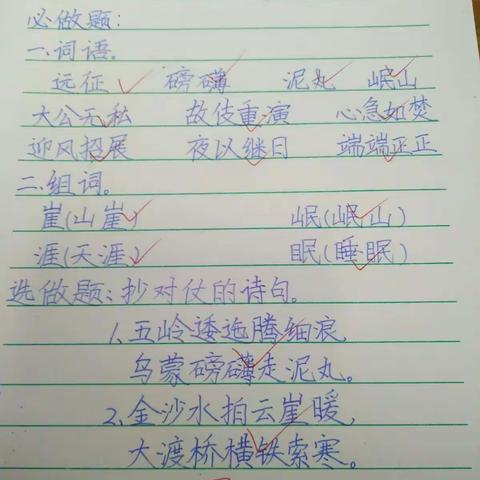 必做题:
一.词语。
远征 磅礴 泥丸 岷山
大公无私 故伎重演 心急如焚
迎风招展 夜以继日 端端正正
二.组词。
崖(山崖) 岷(岷山)
涯(天涯) 眠(睡眠)
选做题:抄对仗的诗句。
1.五岭逶迤腾细浪,
乌蒙磅礴走泥丸。
2.金沙水拍云崖暖,
大渡桥横铁索寒。